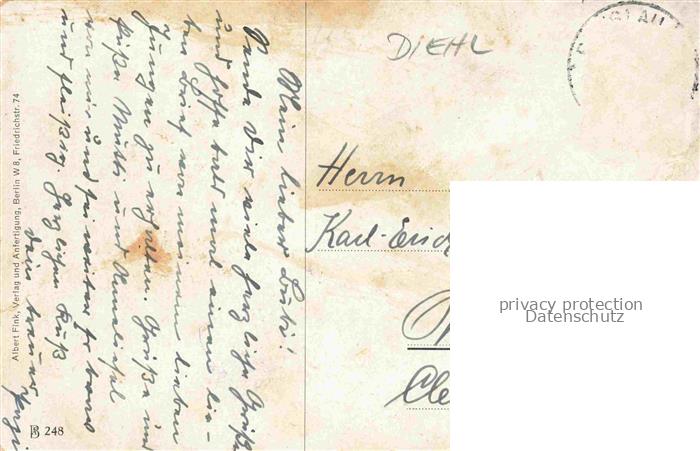 Mein lieber Bubi!
Sende dir viele herzliche Grüße
und hoffe bald mal einen lie-
ben Brief von meinem lieben
Jungen zu erhalten. Grüße und
küße Mutti und
von mir und sei weiter so brav
und fleißig. Herzlichen Kuß
dein treuer
Albert Fink, Verlag und Anfertigung, Berlin W 8, Friedrichstr. 74
248
DIEHL
Herrn
Karl-Erich
privacy protection
Datenschutz